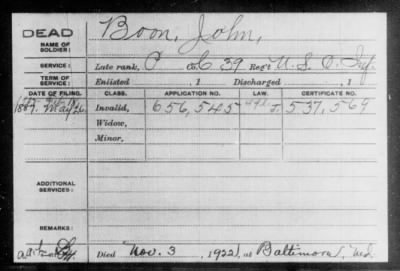 DEAD
NAME OF SOLDIER: Boon, John,
SERVICE: Late rank, P Co. C 39 Reg't U. S. C. Inf.
TERM OF SERVICE: Enlisted , 1 Discharged , 1
DATE OF FILING. CLASS. APPLICATION NO. LAW. CERTIFICATE NO.
May 26 Invalid, 656,545 537,569
Widow,
Minor,
ADDITIONAL SERVICES:
REMARKS:
Died Nov. 3, 1922, at Baltimore, Md.